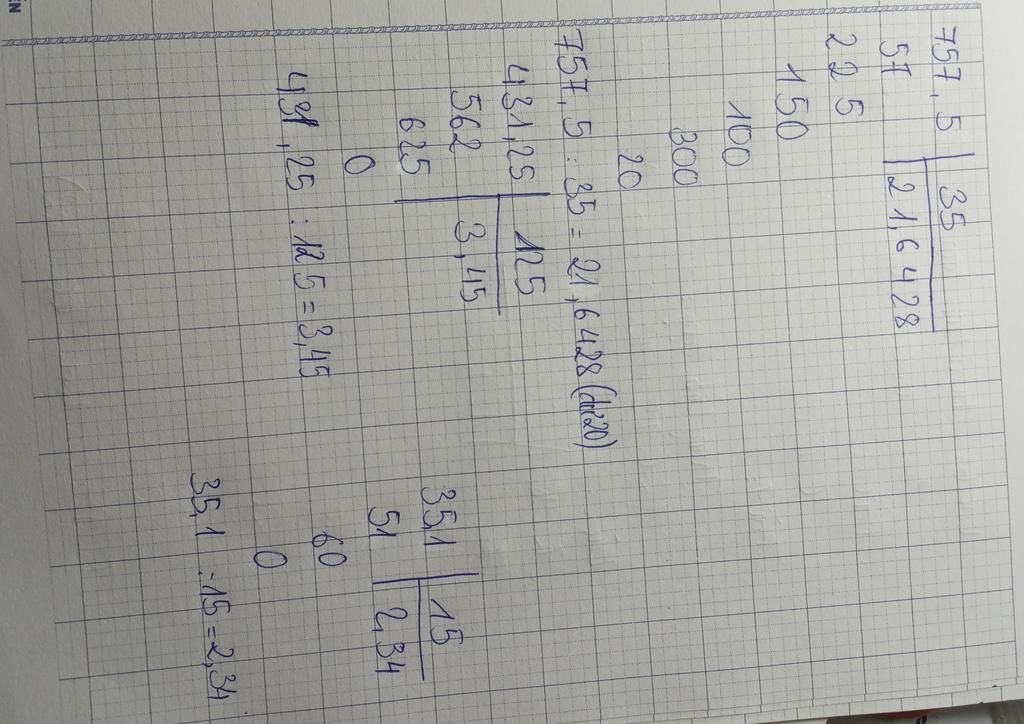 757,5 35
57 21,6428
225
150
100
300
20
757,5 : 35 = 21,6428 (dư 20)
431,25 125
562 3,45
625
0
431,25 : 125 = 3,45
35,1 15
51 2,34
60
0
35,1 : 15 = 2,34